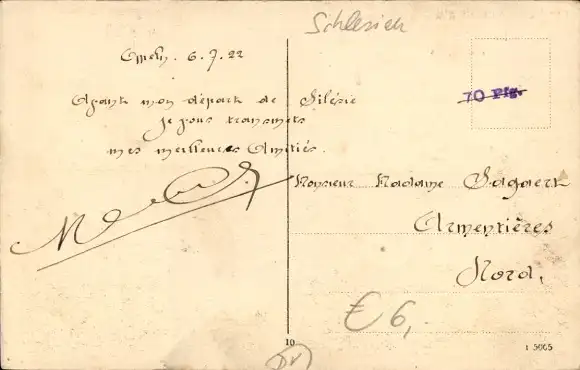 Schlesien
6.7.22
Avant mon départ de Silésie
je vous transmets
mes meilleures Amitiés.
70 Pfg.
Monsieur Madame Sagaert
Armentières
Nord,
€ 6,
10
1 5005